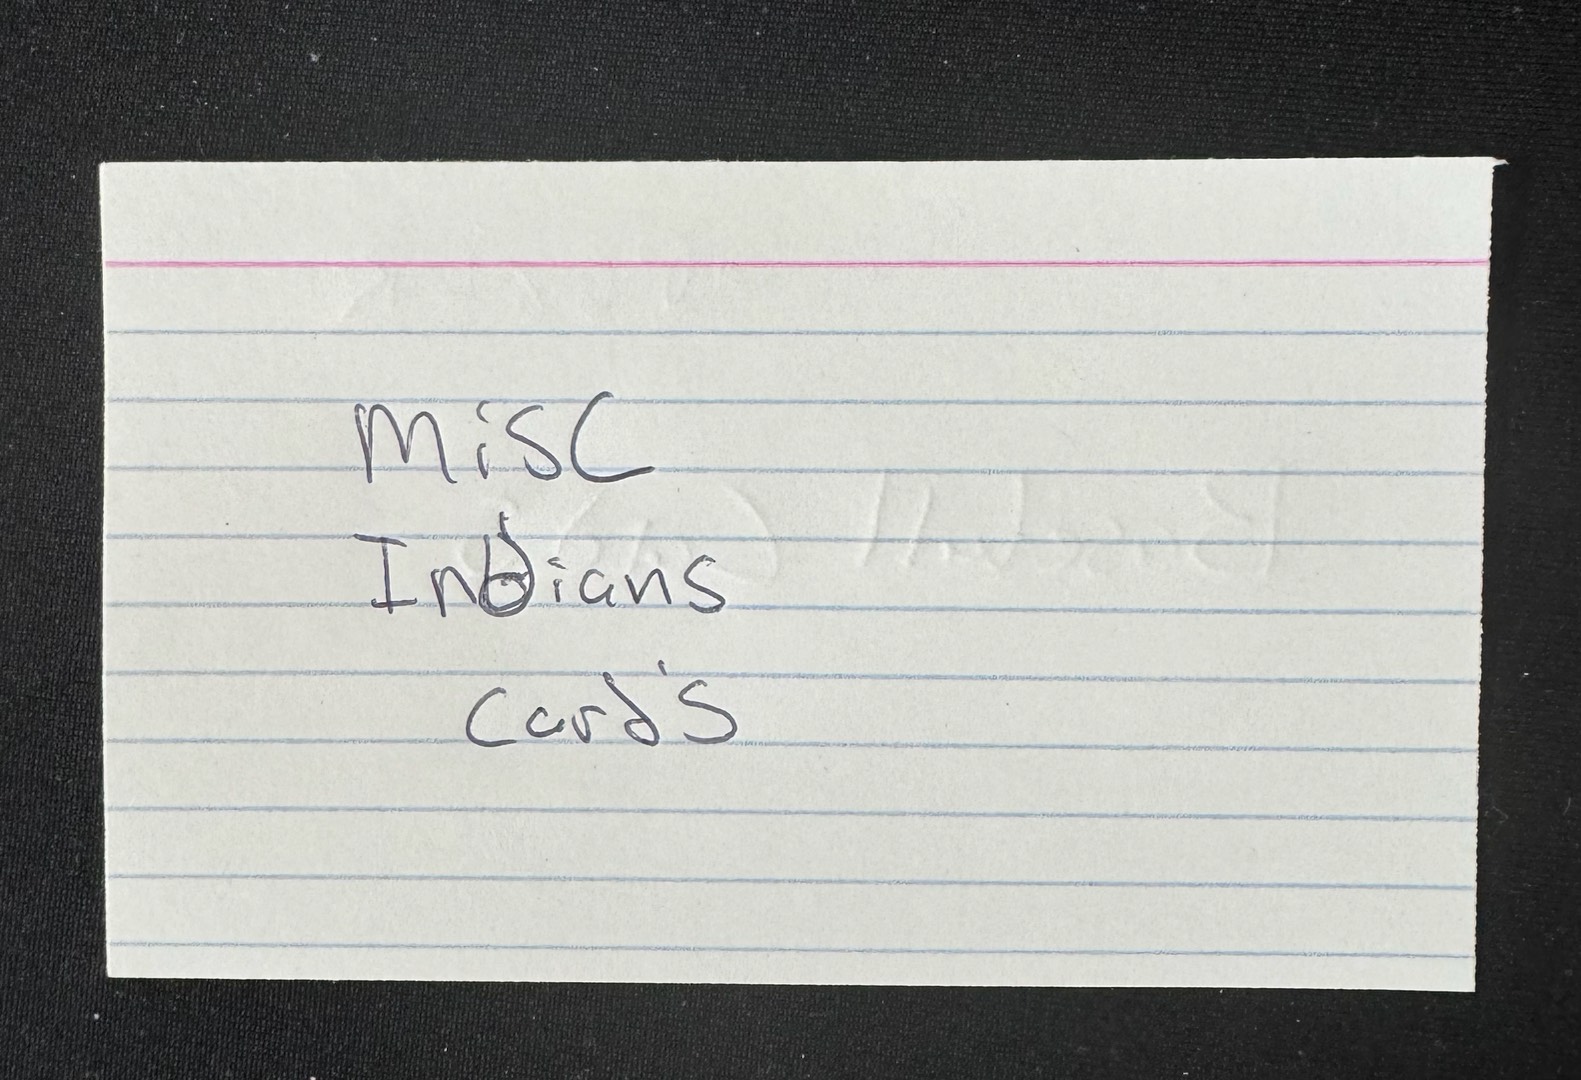 Misc
Indians
Card's